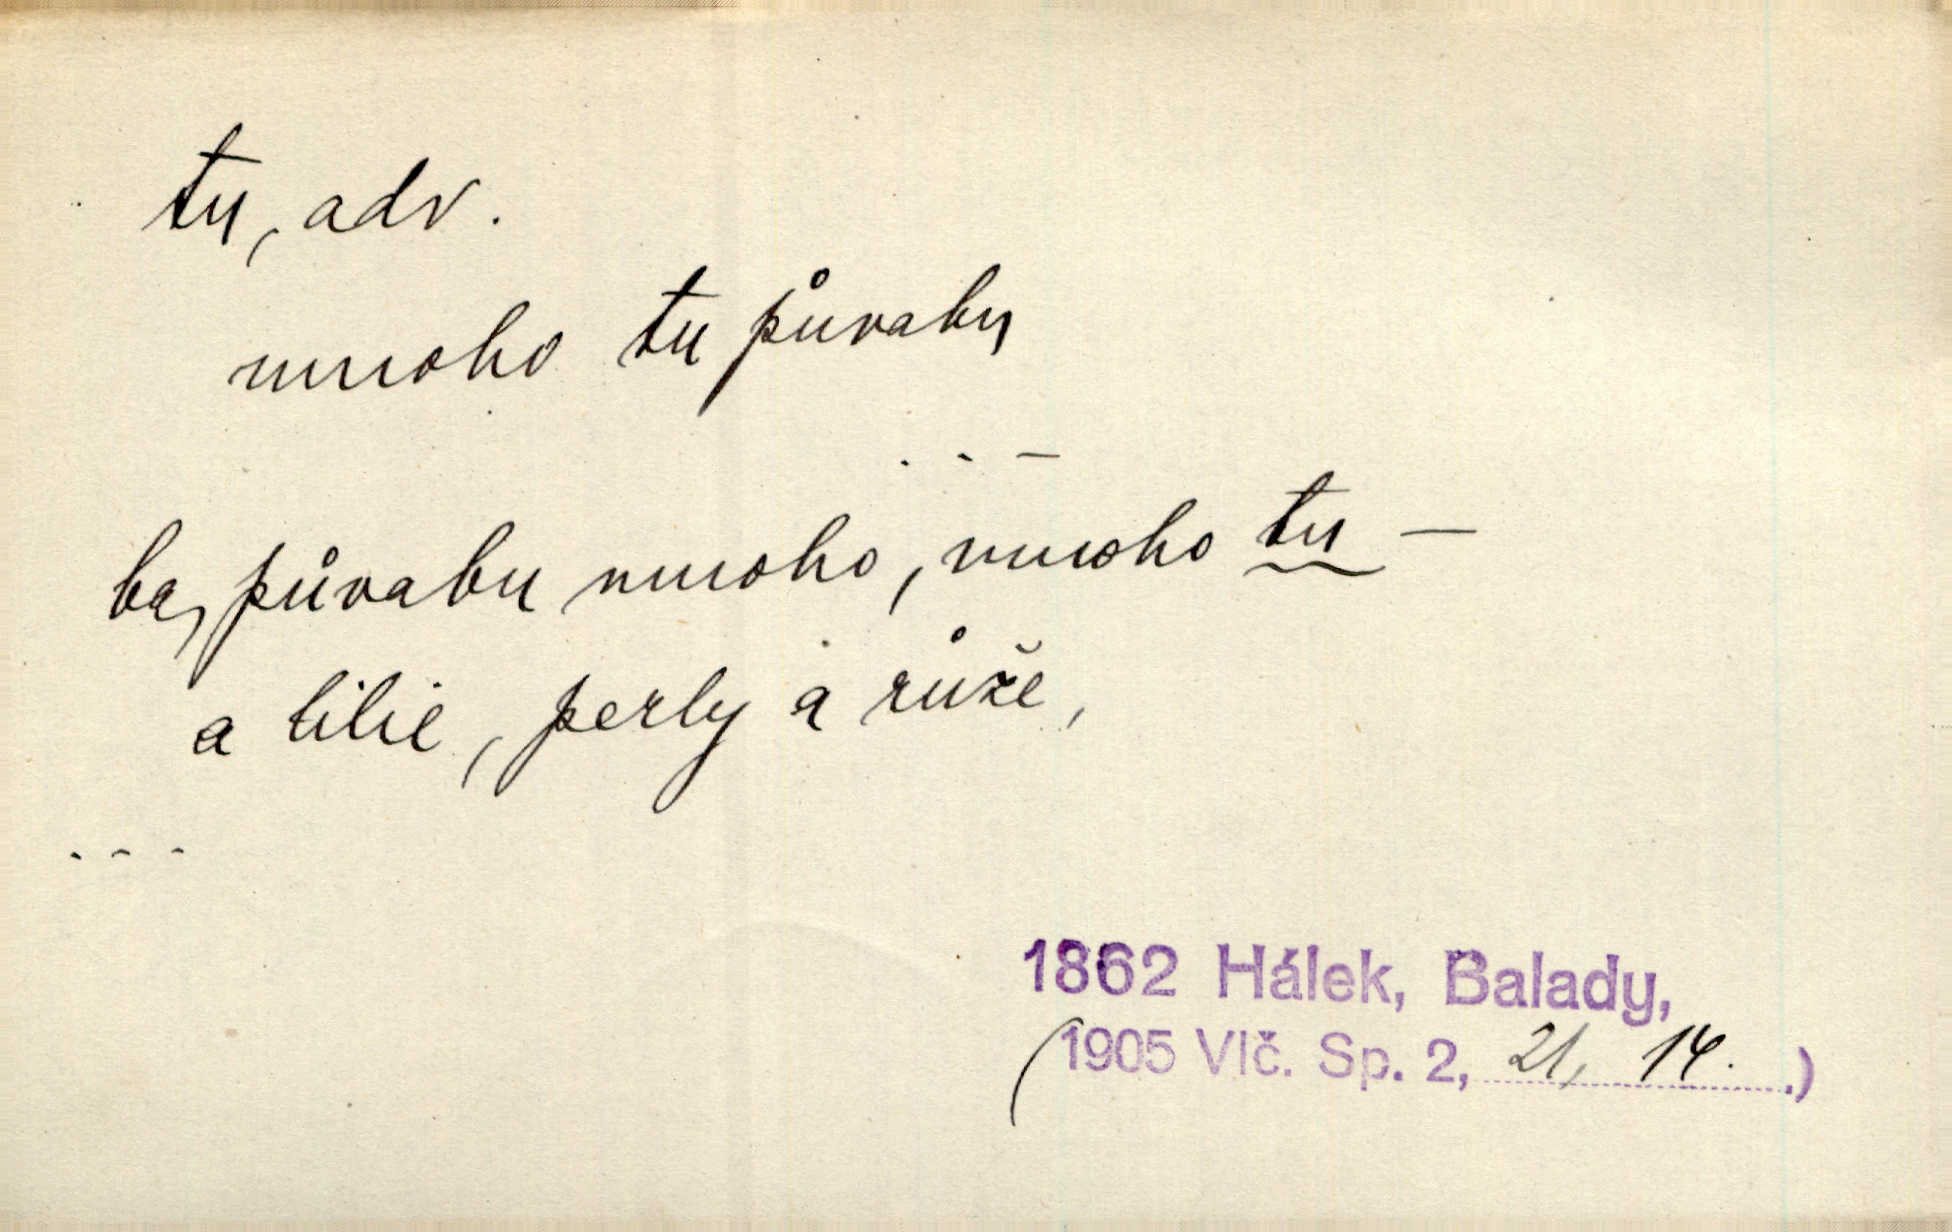 tu, adv.
mnoho tu půvabu
. . –
ba, půvabu mnoho, mnoho tu –
a lilie, perly a růže,
. . .
1862 Hálek, Balady,
(1905 Vlč. Sp. 2, 21, 14. .)